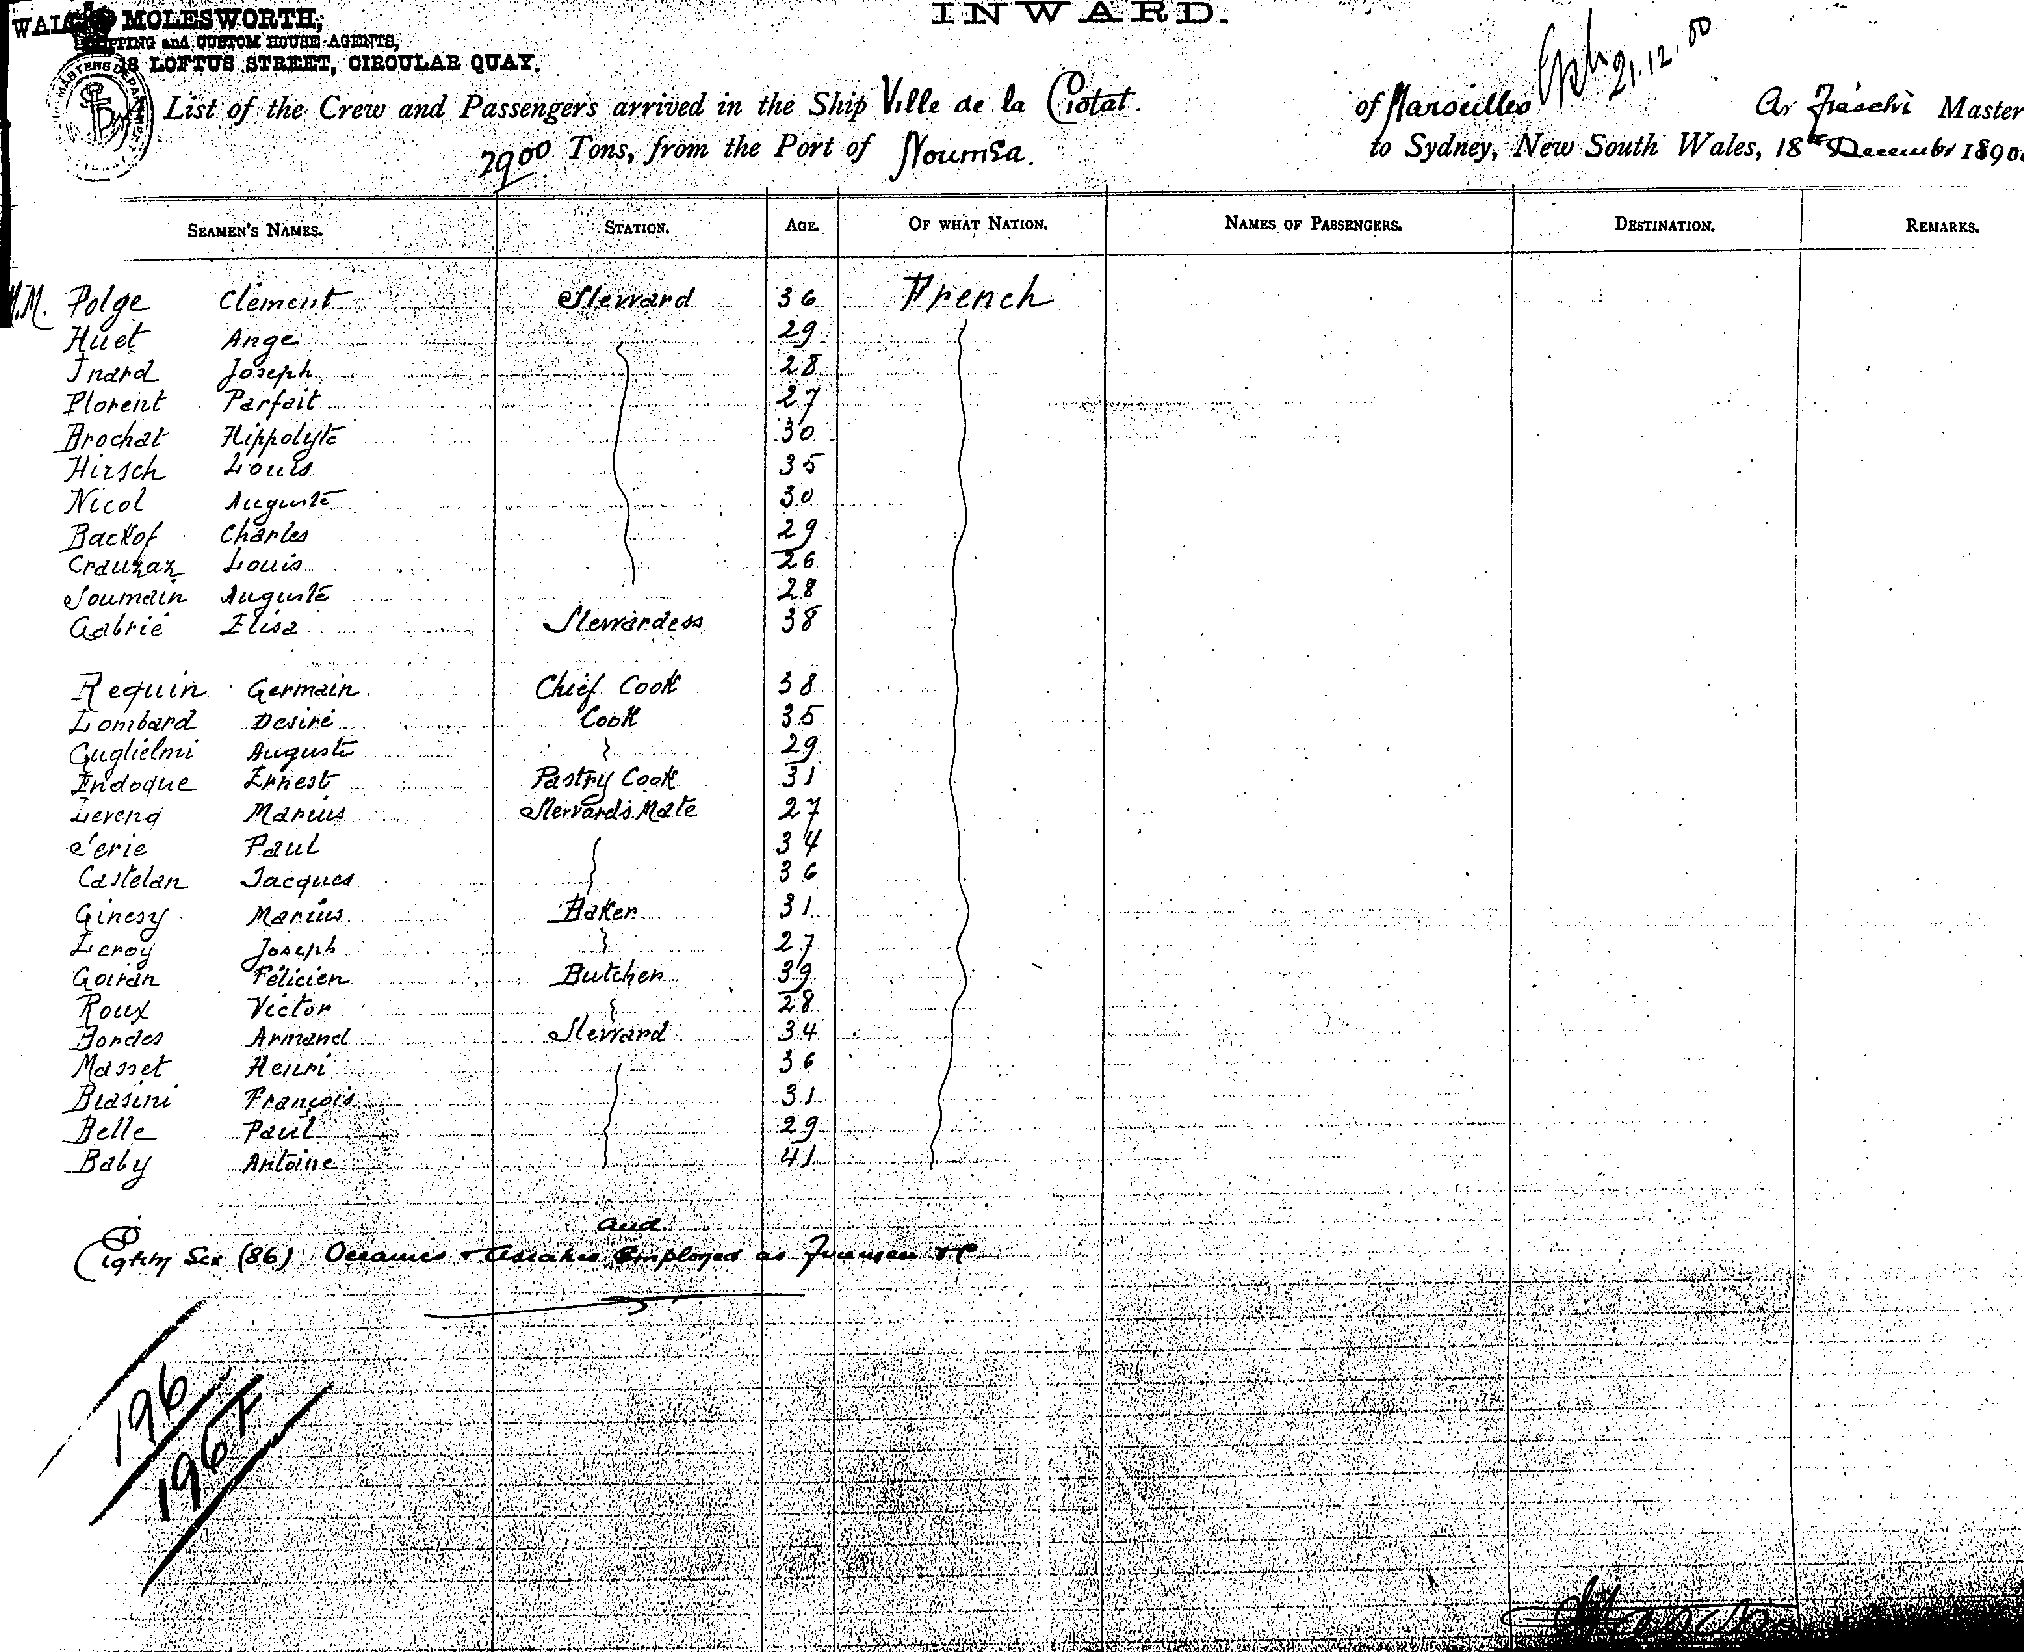 MOLESWORTH,
SHIPPING and CUSTOM HOUSE AGENTS,
18 LOFTUS STREET, CIRCULAR QUAY.
INWARD.
21.12.00
A List of the Crew and Passengers arrived in the Ship Ville de la Ciotat. of Marseilles Ar Fiaschi Master
2900 Tons, from the Port of Nouméa. to Sydney, New South Wales, 18th December 1890
SEAMEN'S NAMES. STATION. AGE. OF WHAT NATION. NAMES OF PASSENGERS. DESTINATION. REMARKS.
M.M. Polge Clément Steward 36 French
Huet Ange 29
Inard Joseph 28
Florent Parfait 27
Brochat Hippolyte 30
Hirsch Louis 35
Nicol Auguste 30
Backof Charles 29
Crauzaz Louis 26
Soumain Auguste 28
Gabrié Elisa Stewardess 38
Requin Germain Chief Cook 38
Lombard Desiré Cook 35
Guglielmi Auguste 29
Endoque Ernest Pastry Cook 31
Marius Steward's Mate 27
Paul 34
Castelan Jacques 36
Ginesy Marius Baker 31
Leroy Joseph 27
Goiran Félicien Butcher 39
Roux Victor 28
Bordes Armand Steward 34
Masset Henri 36
Biasini François 31
Belle Paul 29
Baby Antoine 41
and
Eighty Six (86) Oceanics Asiatics Employed as Firemen &c
196
196 F